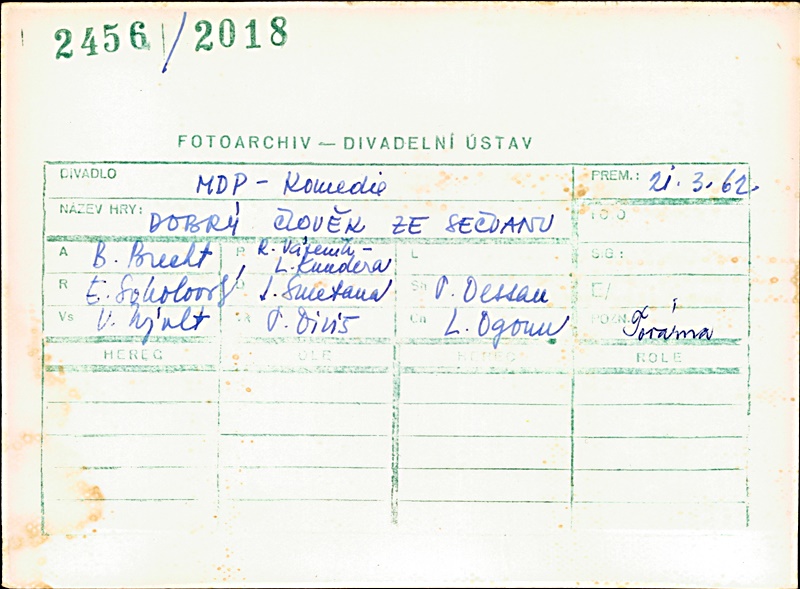 2456/2018
FOTOARCHIV — DIVADELNÍ ÚSTAV
DIVADLO MDP - Komedie PREM.: 21.3.62.
NÁZEV HRY: DOBRÝ ČLOVĚK ZE SEČUANU FOTO
A B. Brecht P L. Kundera L SIG:
R E. Sokolovský D J. Smetana Sh P. Dessau
Vs V. Nývlt P. Diviš Ch L. Ogoun POZN.
HEREC ROLE HEREC ROLE